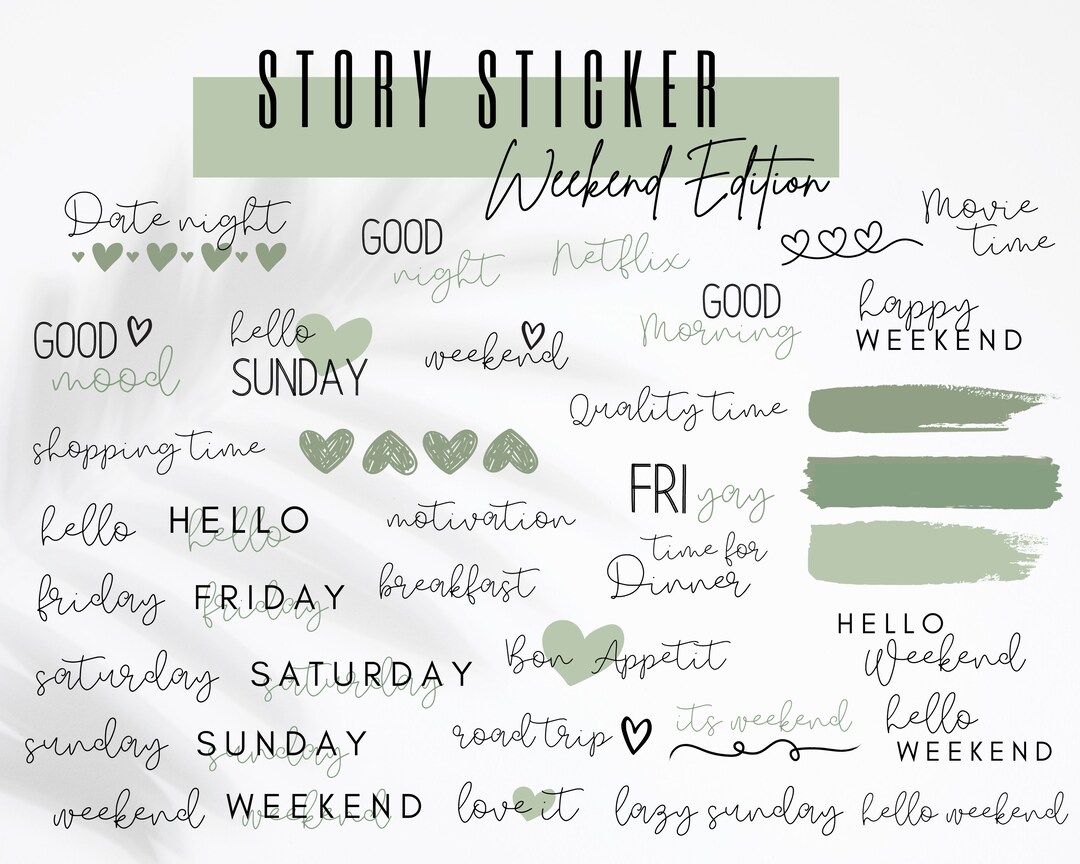 STORY STICKER
Weekend Edition
Date night
GOOD
night
Netflix
Movie
time
GOOD
mood
hello
SUNDAY
weekend
GOOD
Morning
happy
WEEKEND
Quality time
shopping time
FRI yay
hello
HELLO
hello
motivation
time for
Dinner
friday
FRIDAY
friday
breakfast
HELLO
Weekend
saturday
SATURDAY
saturday
Bon Appetit
sunday
SUNDAY
sunday
road trip
its weekend
hello
WEEKEND
weekend
WEEKEND
weekend
love it
lazy sunday
hello weekend